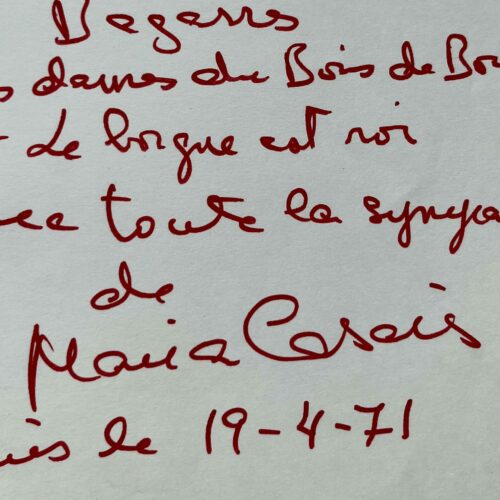 Bagarres
s dames du Bois de Bou
Le borgne est roi
vec toute la sympa
de
Maria Casarès
ris le 19-4-71